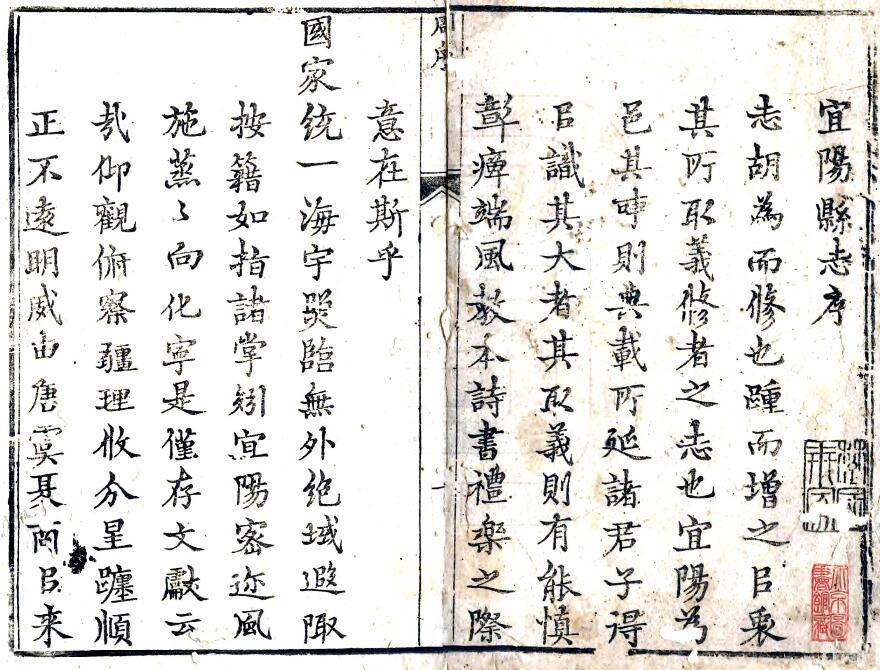 宜陽縣志序
志胡為而修也踵而增之㠯衷
其所取義修者之志也宜陽為
邑其事則典載所延諸君子得
㠯識其大者其取義則有能慎
彰癉端風教本詩書禮樂之際
周序
一
意在斯乎
國家統一海宇照臨無外絶域遐陬
按籍如指諸掌矧宜陽密迩風
施蒸〻向化寧是僅存文獻云
㢤仰觀俯察疆理收分星躔順
正不遠明威由唐虞夏商㠯来